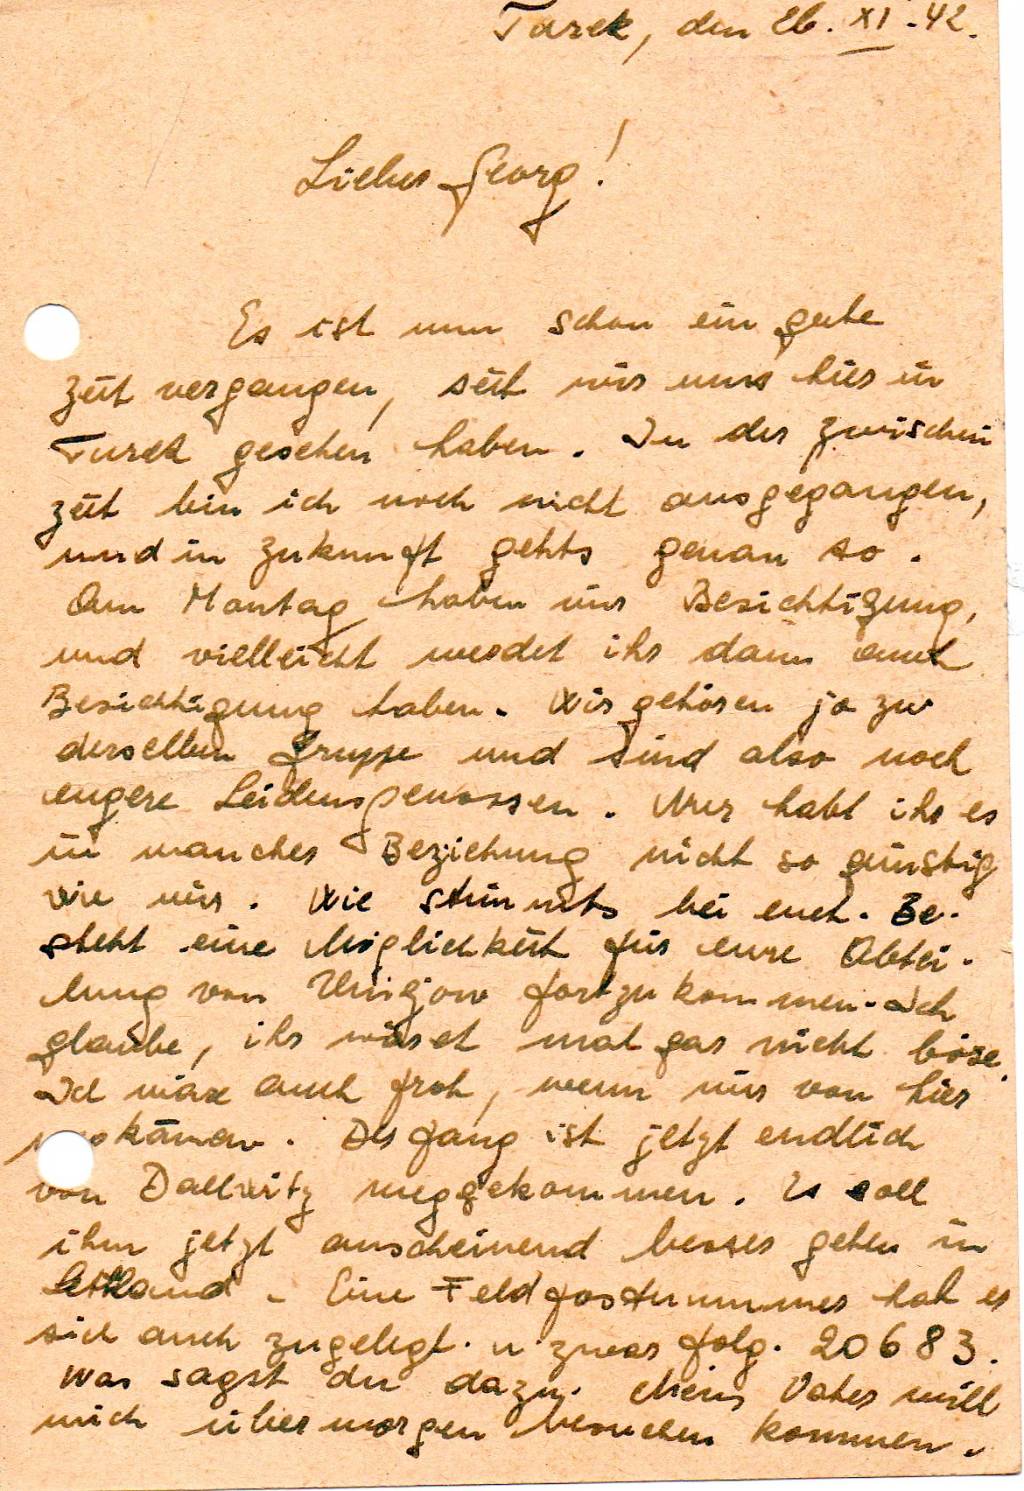 Turek, den 26. XI. 42.
Lieber Georg!
Es ist nun schon ein gute
Zeit vergangen, seit wir uns hier in
Turek gesehen haben. In der Zwischen
zeit bin ich noch nicht ausgegangen,
und in Zukunft gehts genau so.
Am Montag haben wir Besichtigung,
und vielleicht werdet ihr dann auch
Besichtigung haben. Wir gehören ja zur
derselben Gruppe und sind also noch
engere Leidensgenossen. Nur habt ihr es
in mancher Beziehung nicht so günstig
wie wir. Wie stimmts bei euch. Be-
steht eine Möglichkeit für eure Abtei-
lung von Uniejow fortzukommen. Ich
glaube, ihr wäret mal gar nicht böse.
Ich wäre auch froh, wenn wir von hier
kämen. Der Fang ist jetzt endlich
von Dallwitz weggekommen. Es soll
ihm jetzt anscheinend besser gehen in
Lettland. Eine Feldpostnummer hat er
sich auch zugelegt. u zwar folg. 20683.
Was sagst du dazu. Mein Vater will
mich übermorgen besuchen kommen.